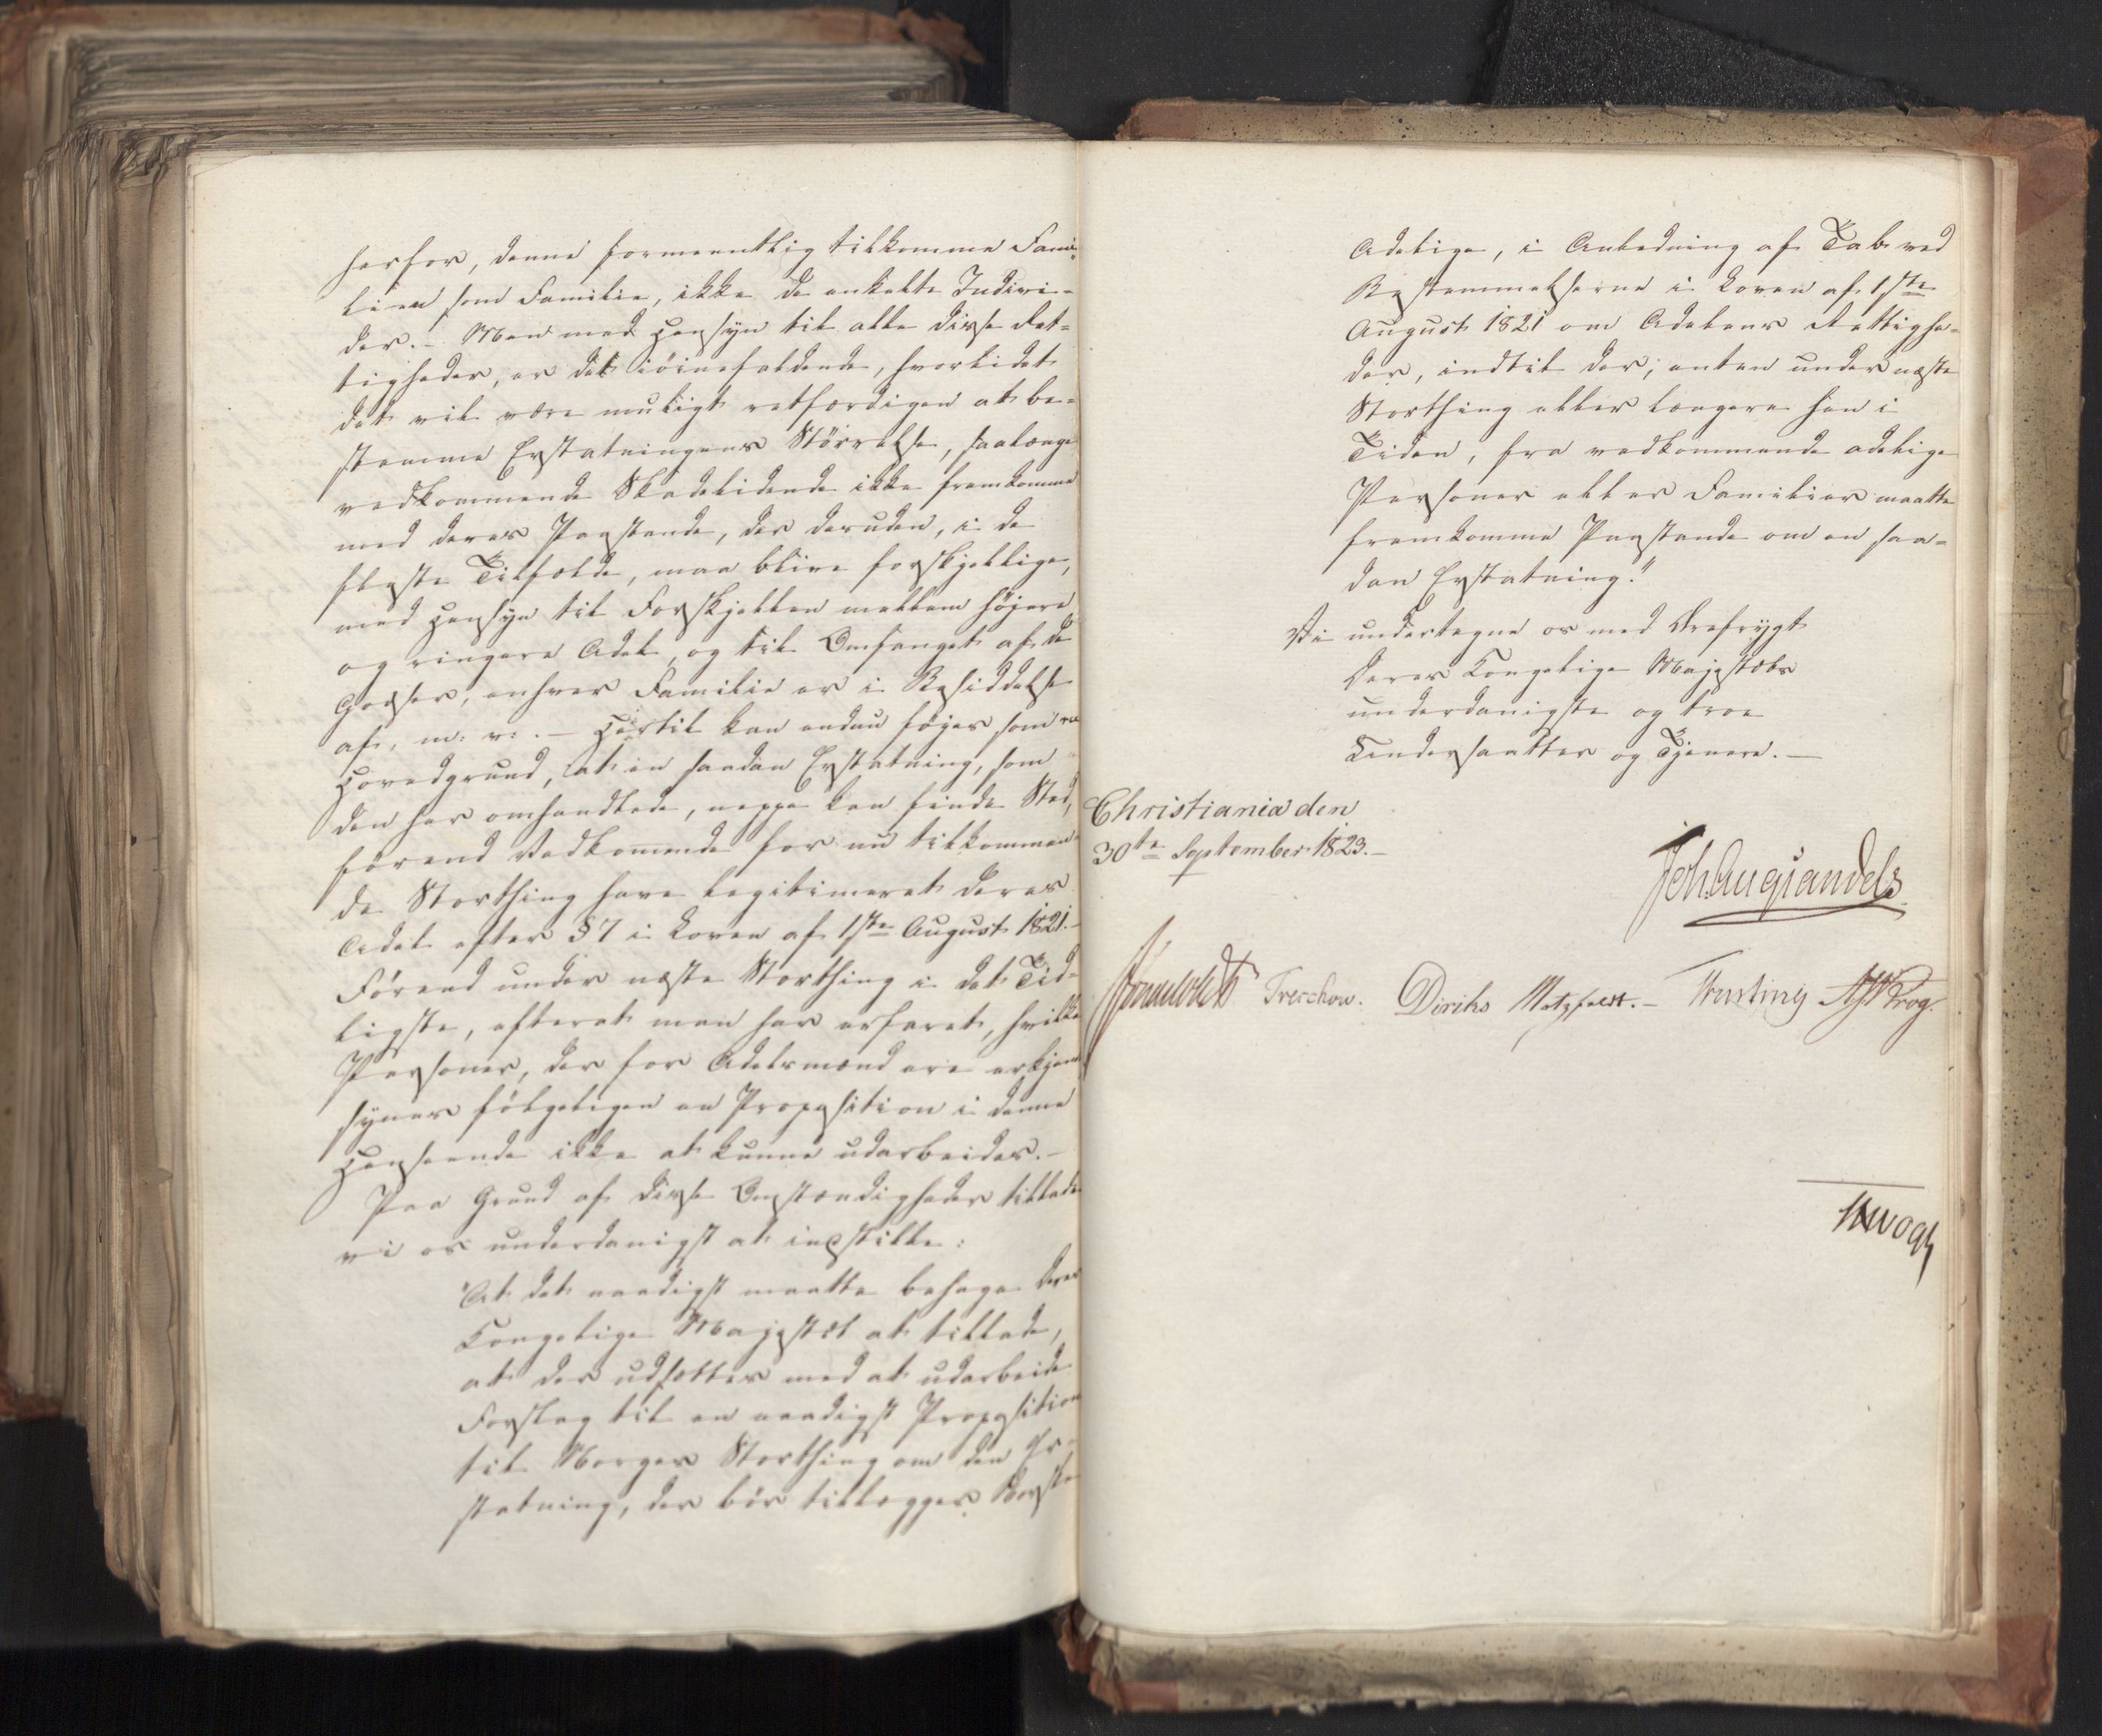 herfor, denne formeentlig tilkomme Fami-
lien som Familie, ikke de enkelte Indivi-
der. – Men med Hensyn til alle disse Ret-
tigheder, er det iøinefaldende, hvorlidet
det vil være muligt retfærdigen at be-
stemme Erstatningens Størrelse, saalænge
vedkommende Skadelidende ikke fremkomme
med deres Paastande, der desuden, i de
fleste Tilfælde, maa blive forskjellige,
med Hensyn til Forskjellen mellem højere
og ringere Adel, og til Omfanget af de
Godser, enhver Familie er i Besiddelse
af, m: v: . – Hertil kan endnu føjes som en
Hovedgrund, at en saadan Erstatning, som
den her omhandlede, neppe kan finde Sted,
førend Vedkommende for nu tilkommen-
de Storthing have legitimeret deres
Adel efter § 7 i Loven af 1ste August 1821. –
Førend under næste Storthing i det Tid-
ligste, efterat man har erfaret, hvilke
Personer, der for Adelsmænd ere erkjendte
synes følgeligen en Proposition i denne
Henseende ikke at kunne udarbeides. –
Paa Grund af disse Omstændigheder tillade
vi os underdanigst at indstille:
"At det naadigst maatte behage Deres
Kongelige Majestæt at tillade,
at der udsættes med at udarbeide
Forslag til en naadigst Proposition
til Norges Storthing om den Er-
statning, der bør tillægges Norske
Adelige, i Anledning af Tab ved
Bestemmelserne i Loven af 1ste
August 1821 om Adelens Rettighe-
der, indtil der, enten under næste
Storthing eller længere hen i
Tiden, fra vedkommende adelige
Personer eller Familier maatte
fremkomme Paastande om en saa-
dan Erstatning."
Vi undertegne os med Ærefrygt
Deres Kongelige Majestæts
underdanigste og troe
Undersaatter og Tjenere. –
Christiania den
30te September 1823. –
Joh. Aug. Sandels
Sommerhielm Treschow. Diriks Motzfeldt. – Fasting J H Krog.
H Vogt